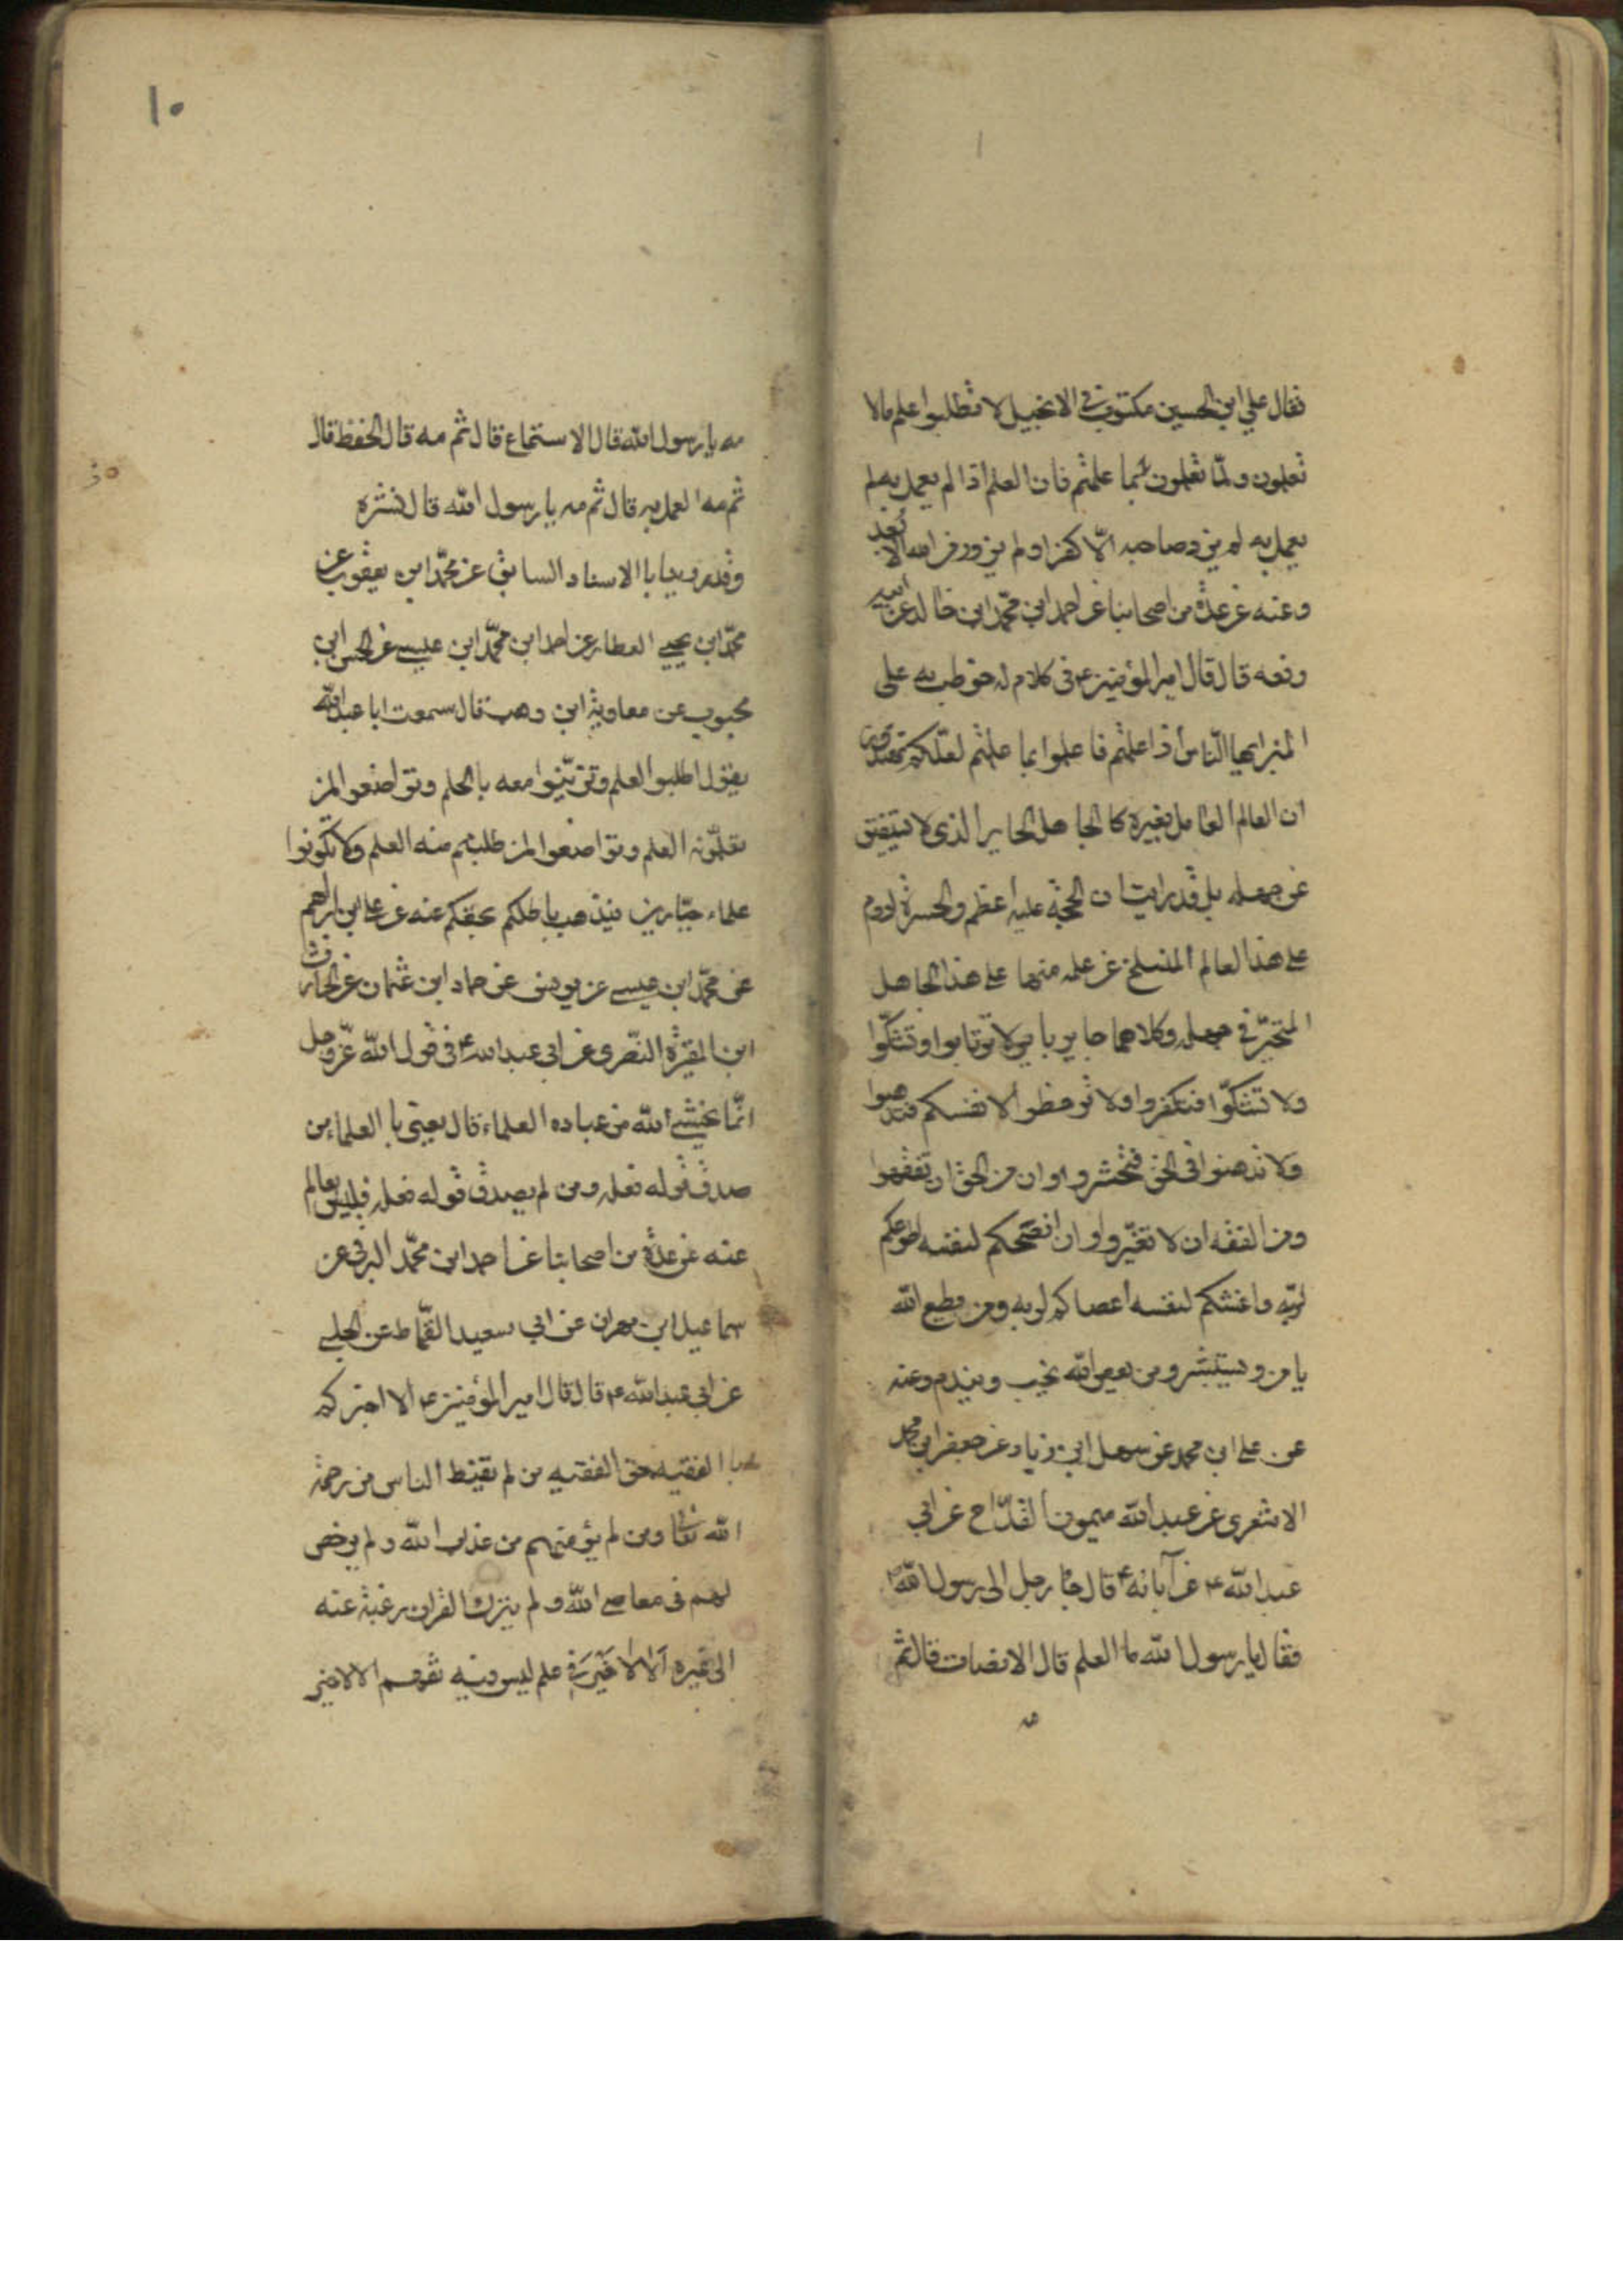 فقال علي ابن الحسين مكتوب في الانجيل لا تطلبوا علم مالا
تعلمون ولمّا تعلمون بما علمتم فان العلم اذا لم يعمل به لم
يعمل به لم يزد صاحبه الّا كفرا ولم يزدد من الله الا بُعد
وعنه عن عدة من اصحابنا عن احمد ابن محمّد ابن خالد عن ابيه
رفعه قال قال امير المؤمنين ع في كلام له خوطب به على
المنبر ايها النّاس اذا علمتم فاعلموا بما علمتم لعلّكم تهتدون
ان العالم العامل بغيره كالجاهل الحاير الذي لا يستفيق
عن جهله بل قد رايت ان الحجة عليه اعظم والحسرة ادوم
على هذا العالم المنسلخ عن علمه منها على هذا الجاهل
المتحيّر في جهله وكلاهما حاير باير لا ترتابوا وتشكّوا
ولا تشكّوا فتكفروا ولا ترخظوا لانفسكم فتدهنوا
ولا تدهنوا في الحق فتخشروا وان من الحق ان تفقهوا
ومن الفقه ان لا تغتّروا وان انصحكم لنفسه اطوعكم
لربّه واغشكم لنفسه اعصاكم لربه ومن يطع الله
يامن ويستبشر ومن يعص الله يخيب ويندم وعنه
عن علي ابن محمد عن سهل ابن زياد عن جعفر ابن محمد
الاشعري عن عبد الله ميمون القدّاح عن ابي
عبد الله ع عن آبائه ع قال جاء رجل الى رسول الله ص
فقال يا رسول الله ما العلم قال الانصات قال ثم
مه
١٠
مه يا رسول الله قال الاستماع قال ثم مه قال الحفظ قال
ثم مه العمل به قال ثم مه يا رسول الله قال نشره
وقد روينا باالاسناد السابق عن محمّد ابن يعقوب عن
محمّد ابن يحيى العطار عن احمد ابن محمّد ابن عيسى عن الحسن ابن
محبوب عن معاوية ابن وهب قال سمعت ابا عبد الله
يقول اطلبوا العلم وتزيّنوا معه باالحلم وتواضعوا لمن
تعلّمونه العلم وتواضعوا لمن طلبتم منه العلم ولا تكونوا
علماء جبّارين فيذهب باطلكم بحقكم عنه عن علي ابن ابراهيم
عن محمّد ابن عيسى عن يونس عن حماد ابن عثمان عن الحارث
ابن المغيرة النصري عن ابي عبد الله ع في قول الله عزّ وجل
انّما يخشى الله من عباده العلماء قال يعني باالعلماء من
صدق قوله فعله ومن لم يصدق قوله فعله فليس بعالم
عنه عن عدة من اصحابنا عن احمد ابن محمّد البرقي عن
سماعيل ابن مهران عن ابي سعيد القمّاط عن الحلبي
عن ابي عبد الله ع قال قال امير المؤمنين ع الا اخبركم
باالفقيه حق الفقيه من لم يقنط الناس من رحمة
الله تعا ومن لم يؤمنهم من عذاب الله ولم يرخص
لهم في معاصي الله ولم يترك القران رغبة عنه
الى غيره الا لا خير في علم ليس فيه تفهم الا لا خير